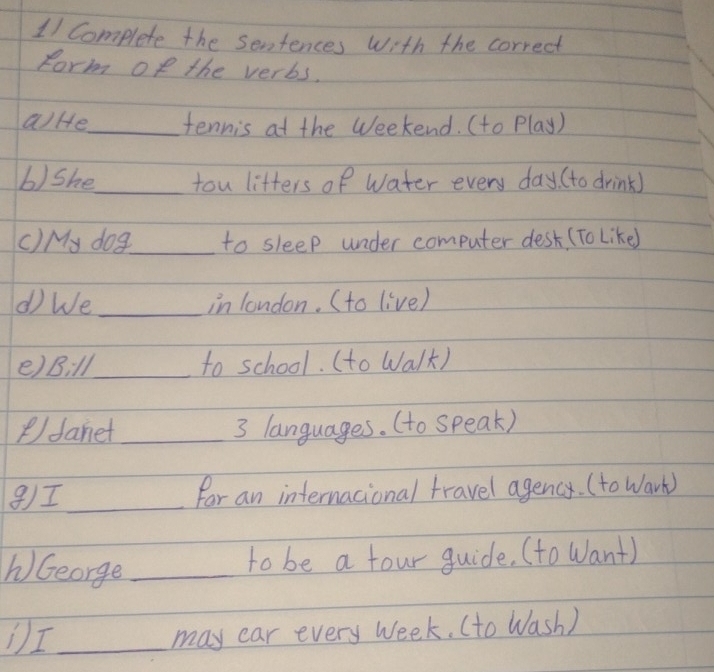 1) Complete the sentences with the correct
form of the verbs.
a) He______tennis at the weekend. (to Play)
b) She______tou litters of water every day. (to drink)
c) My dog______to sleep under computer desk. (To Like)
d) We______in london. (to live)
e) Bill______to school. (to Walk)
f) Janet______3 languages. (to speak)
g) I______for an internacional travel agency. (to Wark)
h) George______to be a tour guide. (to Want)
i) I______may car every week. (to Wash)